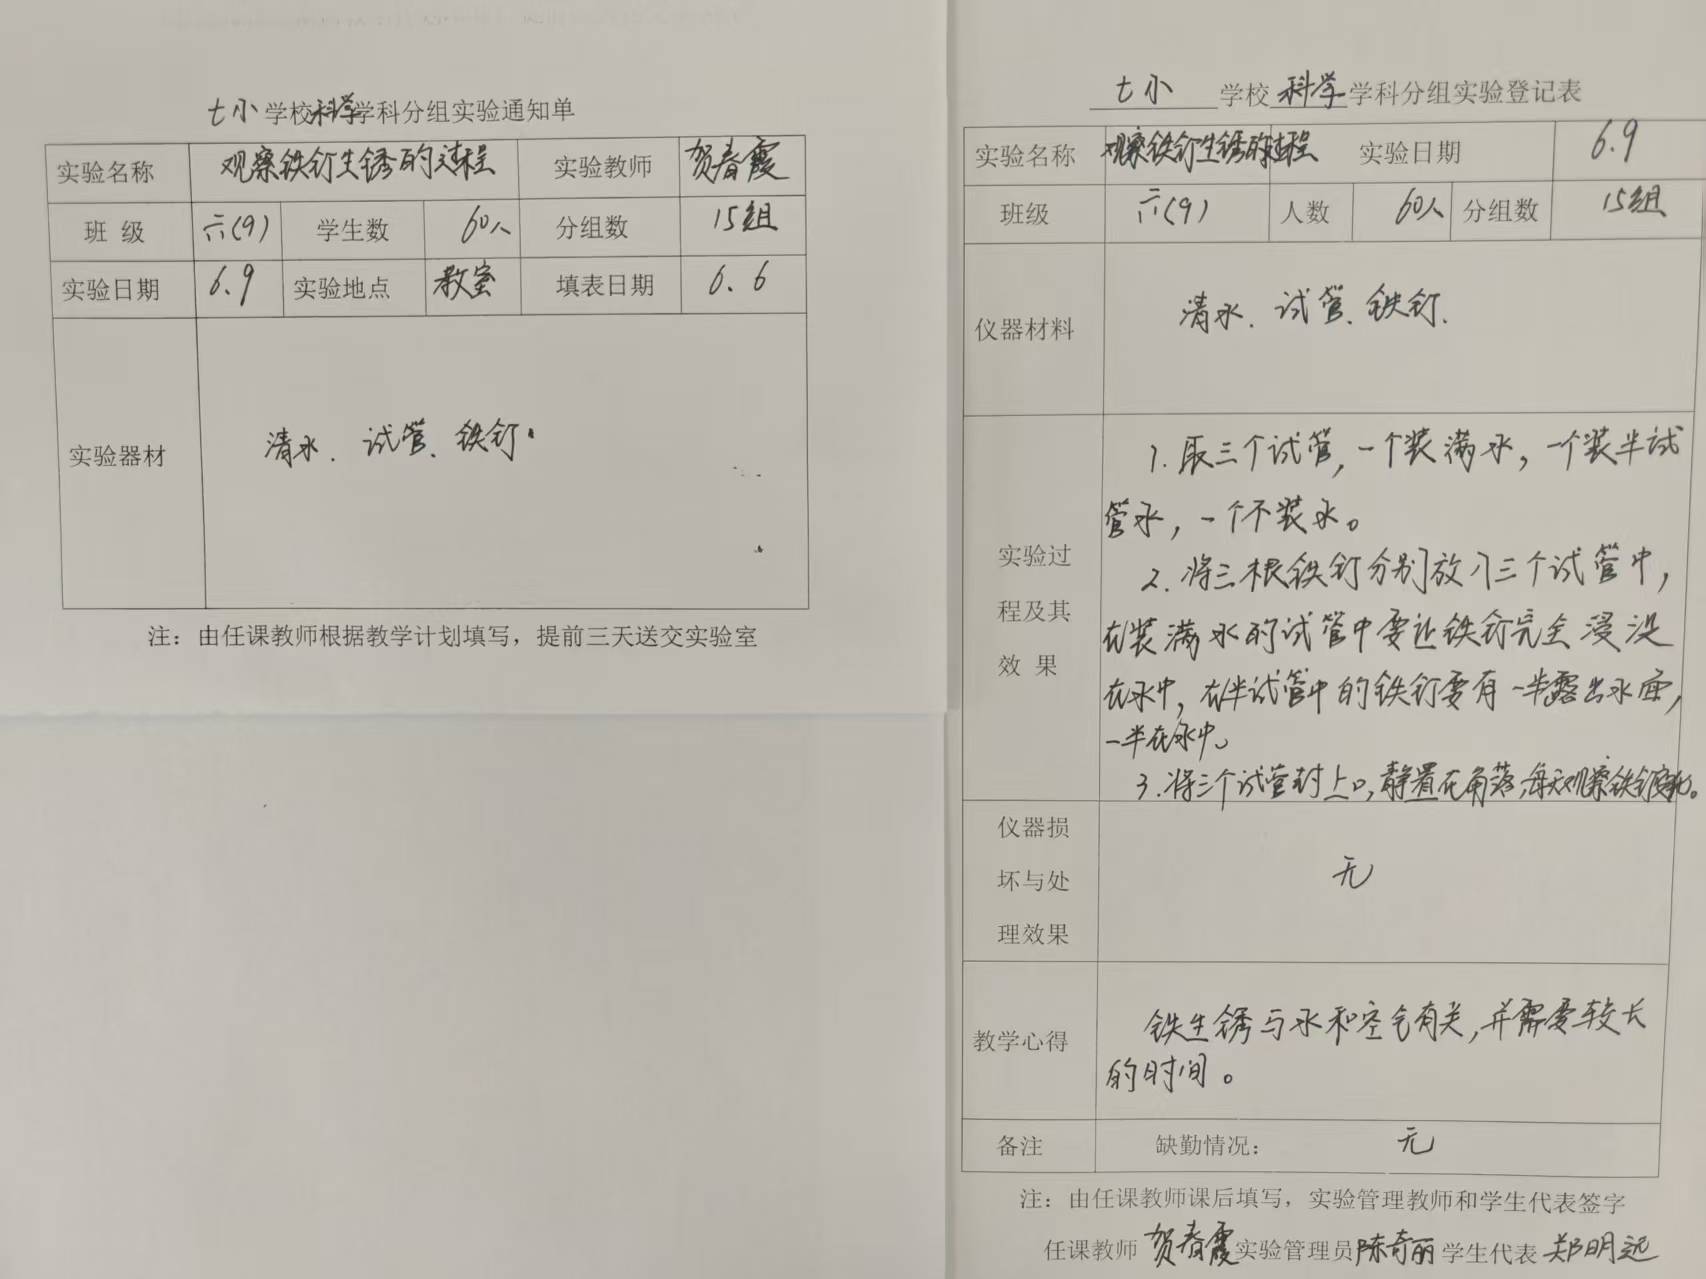 七小学校科学学科分组实验通知单
实验名称 观察铁钉生锈的过程 实验教师 贺春霞
班 级 六(9) 学生数 60人 分组数 15组
实验日期 6.9 实验地点 教室 填表日期 6.6
实验器材 清水、试管、铁钉。
注：由任课教师根据教学计划填写，提前三天送交实验室
七小 学校 科学 学科分组实验登记表
实验名称 观察铁钉生锈的过程 实验日期 6.9
班级 六(9) 人数 60人 分组数 15组
仪器材料 清水、试管、铁钉.
实验过
程及其
效 果
1.取三个试管，一个装满水，一个装半试
管水，一个不装水。
2.将三根铁钉分别放入三个试管中，
在装满水的试管中要让铁钉完全浸没
在水中，在半试管中的铁钉要有一半露出水面，
一半在水中。
3.将三个试管封上口，静置在角落，每天观察铁钉变化。
仪器损
坏与处
理效果
无
教学心得
铁生锈与水和空气有关，并需要较长
的时间。
备注 缺勤情况： 无
注：由任课教师课后填写，实验管理教师和学生代表签字
任课教师 贺春霞 实验管理员 陈奇丽 学生代表 郑明远